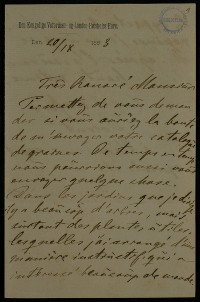 Den Kongelige Veterinær- og Landbohøjskoles Have.
Den 20/IX 1883
Très honoré Monsieur
Permettez de vous deman
der si vous auriez la bonté
de m'envoyer votre catalogue
de graines. De temps en temps
nous pourrions aussi vous
envoyer quelque chose.
Dans les jardins que je
il y a beaucoup d'arbres, mais
surtout des plantes utiles,
lesquelles j'ai arrangé d'une
manière instructif, qui a
intéressé beaucoup de monde